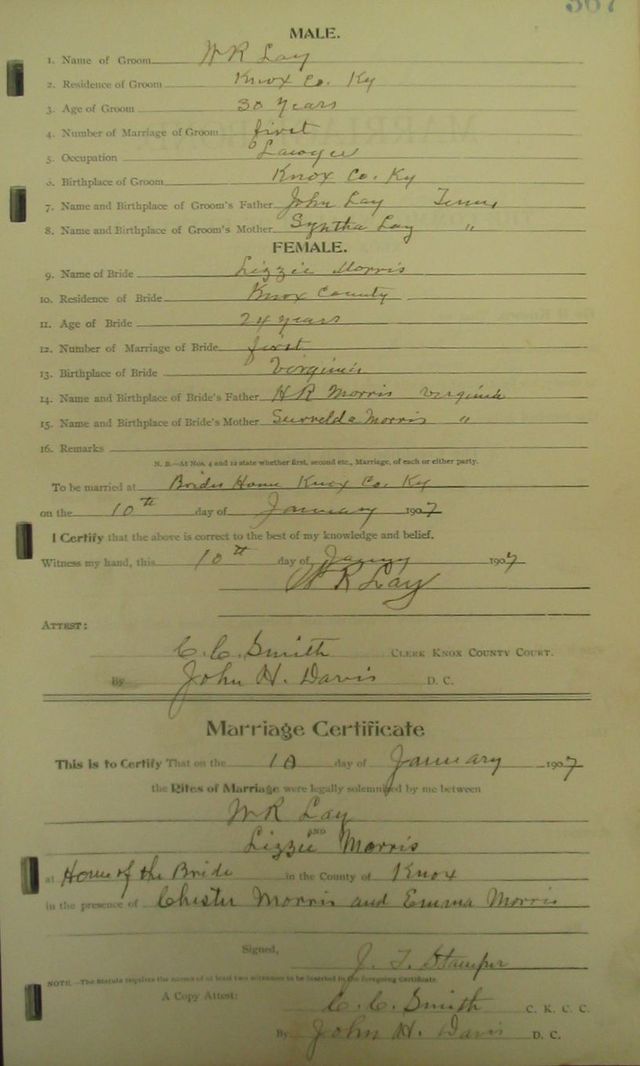 367
MALE.
1. Name of Groom W R Lay
2. Residence of Groom Knox Co. Ky
3. Age of Groom 30 years
4. Number of Marriage of Groom first
5. Occupation Lawyer
6. Birthplace of Groom Knox Co. Ky
7. Name and Birthplace of Groom's Father John Lay Tenn,
8. Name and Birthplace of Groom's Mother Syntha Lay "
FEMALE.
9. Name of Bride Lizzie Morris
10. Residence of Bride Knox County
11. Age of Bride 24 years
12. Number of Marriage of Bride first
13. Birthplace of Bride Virginia
14. Name and Birthplace of Bride's Father H R Morris Virginia
15. Name and Birthplace of Bride's Mother Morris "
16. Remarks
N. B.—At Nos. 4 and 12 state whether first, second etc., Marriage, of each or either party.
To be married at Brides Home Knox Co. Ky
on the 10th day of January 1907
I Certify that the above is correct to the best of my knowledge and belief.
Witness my hand, this 10th day of 1907
W R Lay
ATTEST:
C. C. Smith CLERK KNOX COUNTY COURT.
By John H. Davis D. C.
Marriage Certificate
This is to Certify That on the 10 day of January 1907
the Rites of Marriage were legally solemnized by me between
W R Lay
AND
Lizzie Morris
at Home of the Bride in the County of Knox
in the presence of Chester Morris and Emma Morris
Signed,
J. T. Stamper
NOTE.—The Statute requires the names of at least two witnesses to be inserted in the foregoing Certificate.
A Copy Attest: C. C. Smith C. K. C. C.
By John H. Davis D. C.